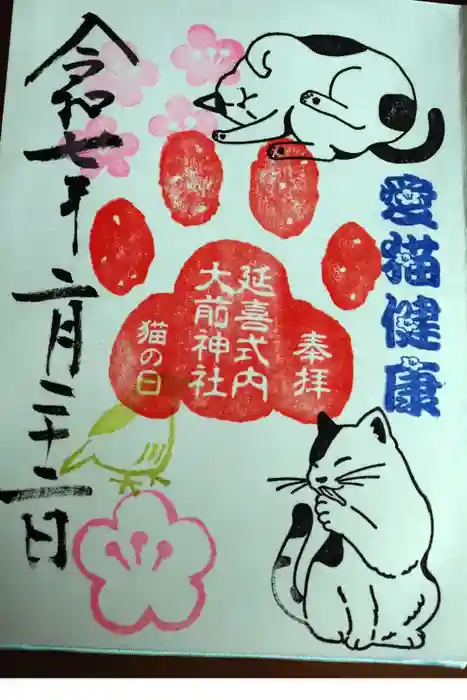 愛猫健康
奉拝
延喜式内
大前神社
猫の日
令和七年二月二十二日